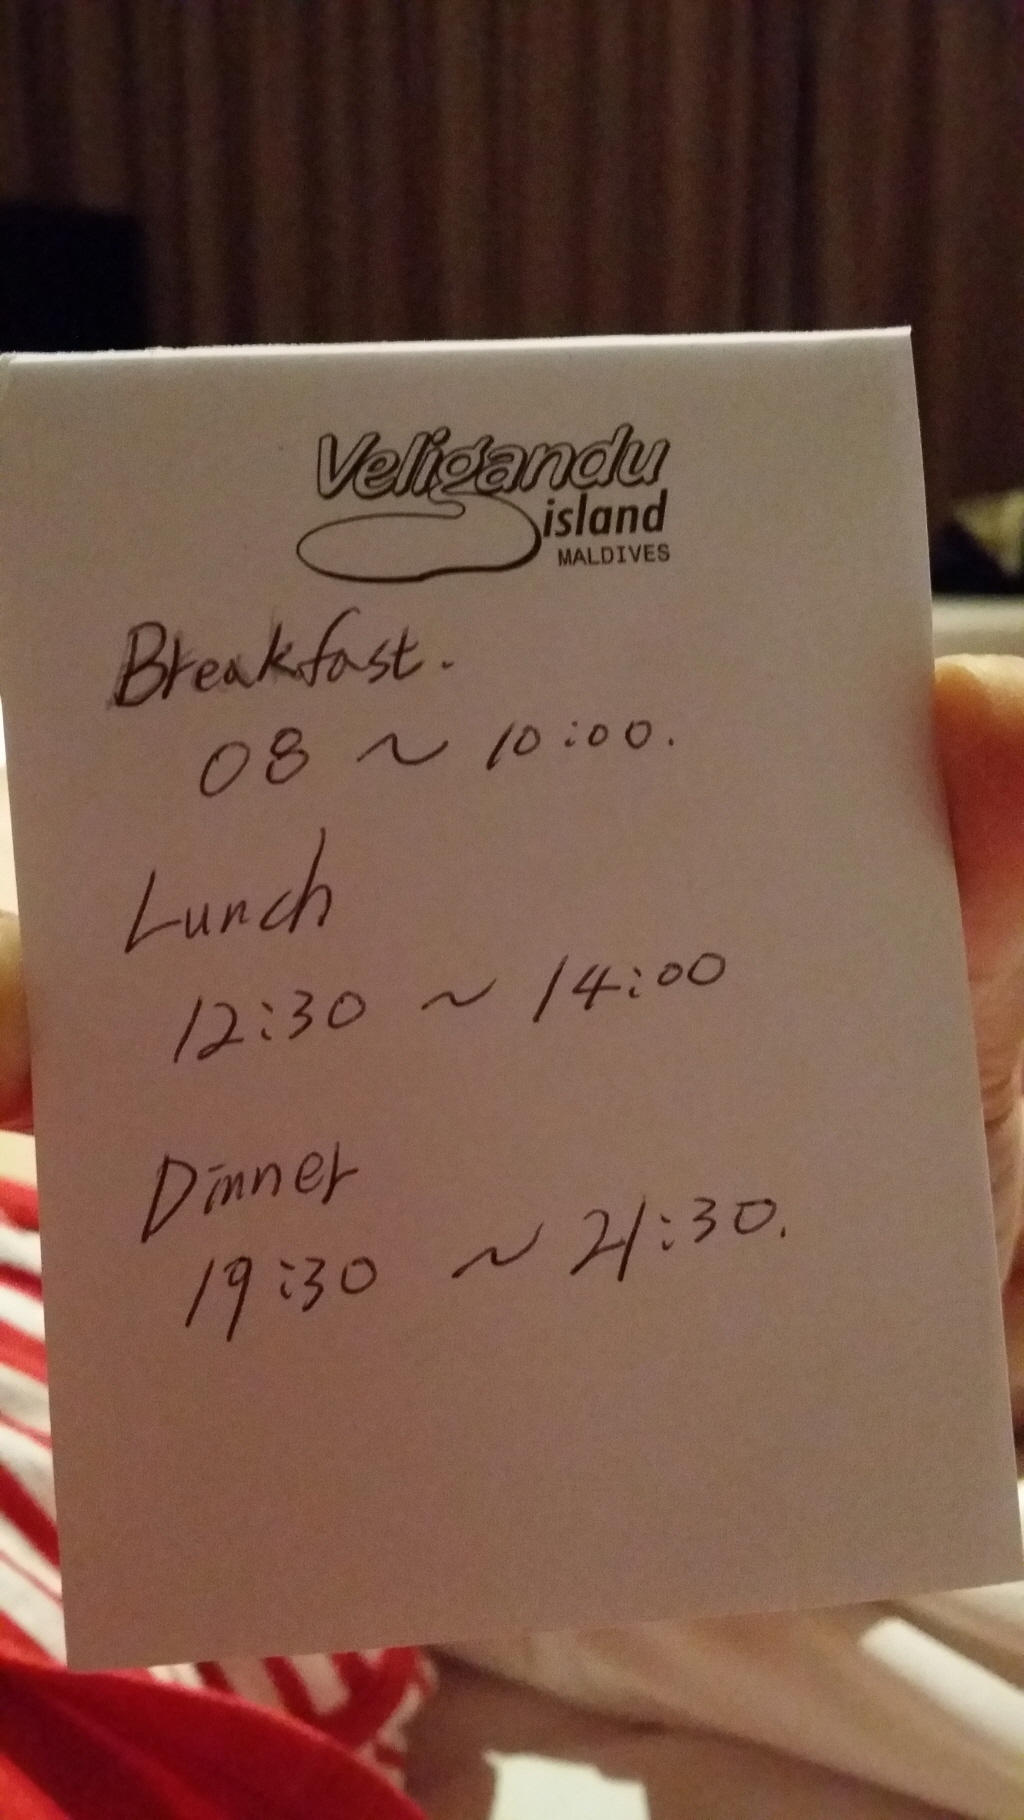 Veligandu
island
MALDIVES
Breakfast.
08 ~ 10:00.
Lunch
12:30 ~ 14:00
Dinner
19:30 ~ 21:30.